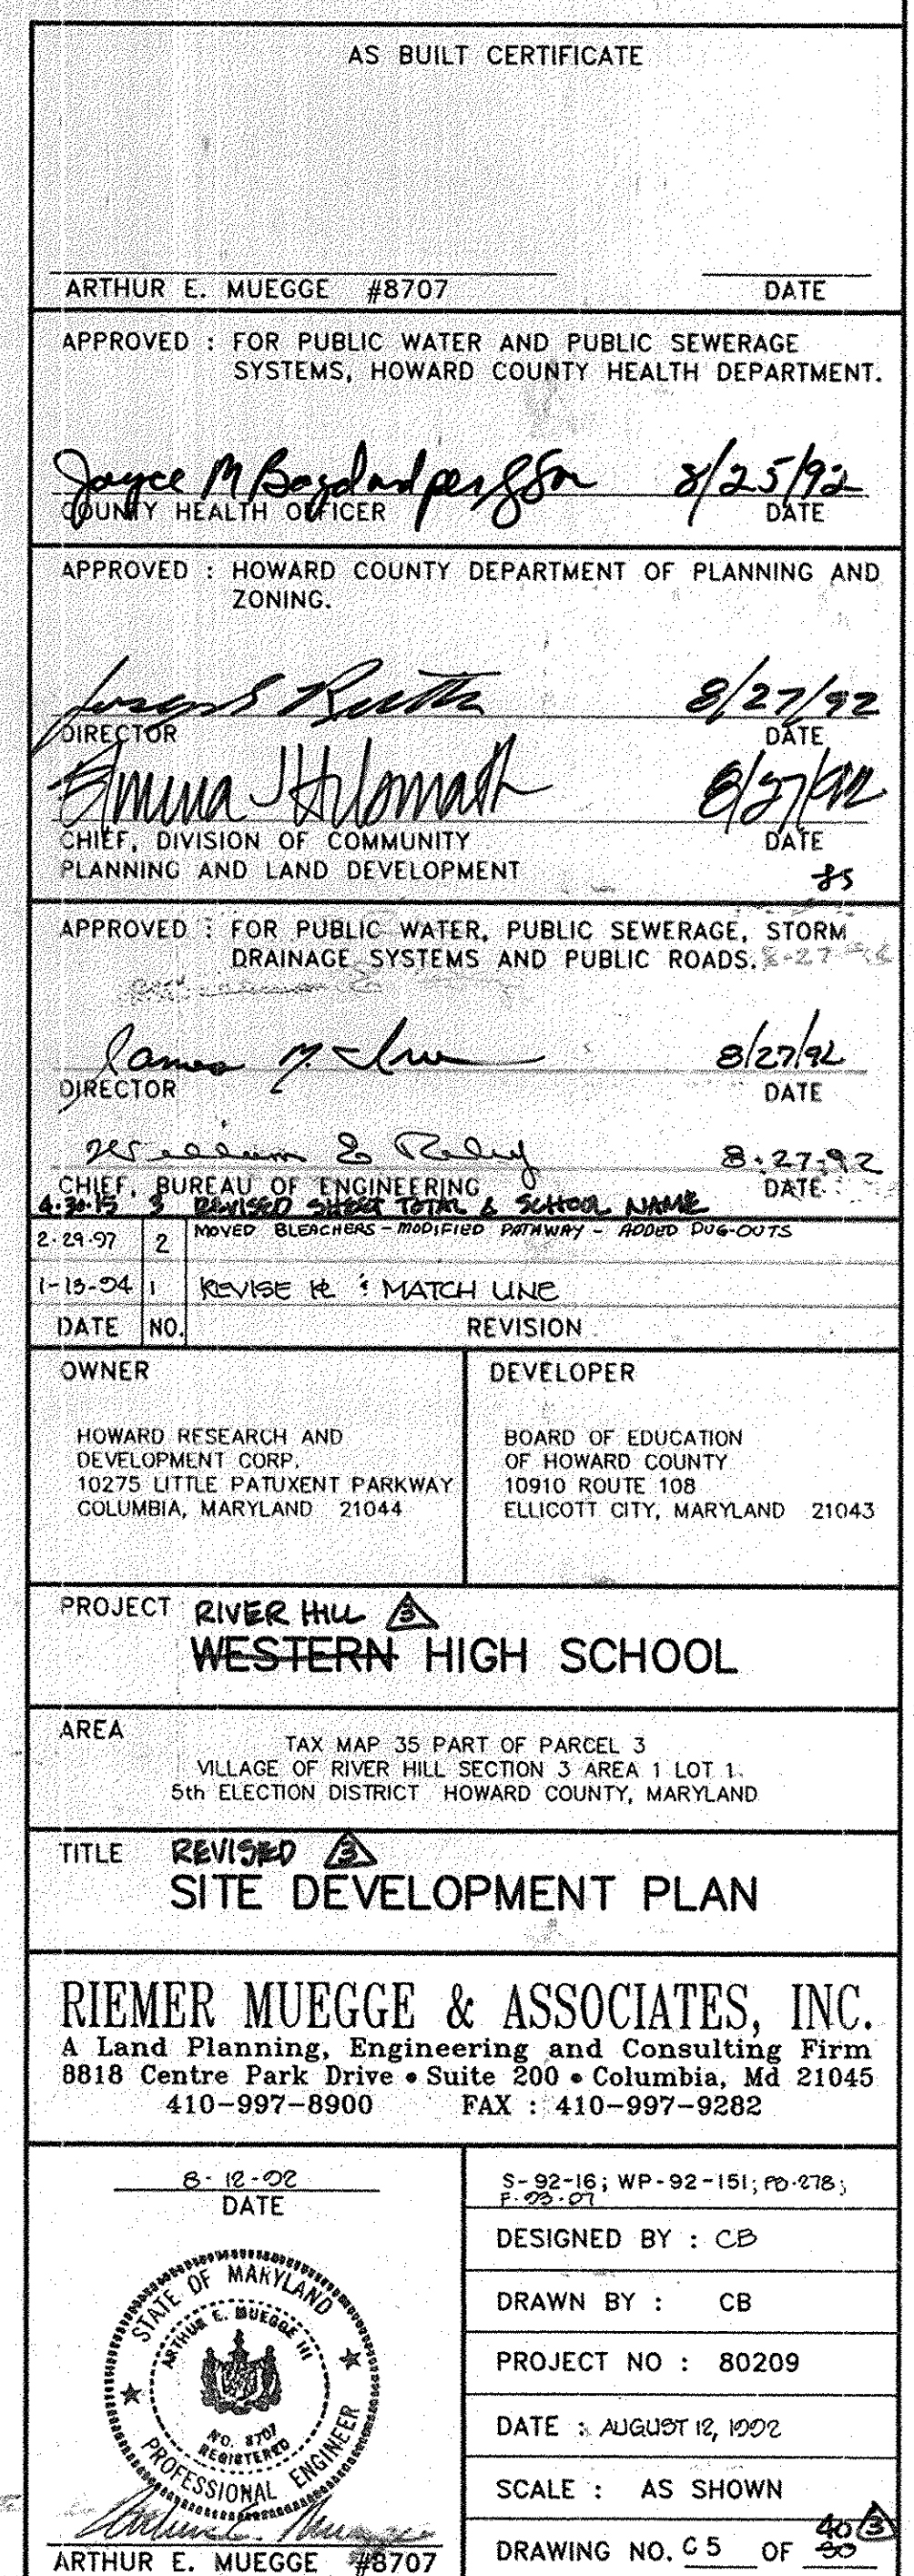 AS BUILT CERTIFICATE
ARTHUR E. MUEGGE #8707 DATE
APPROVED : FOR PUBLIC WATER AND PUBLIC SEWERAGE
SYSTEMS, HOWARD COUNTY HEALTH DEPARTMENT.
Joyce M 8/25/92
COUNTY HEALTH OFFICER DATE
APPROVED : HOWARD COUNTY DEPARTMENT OF PLANNING AND
ZONING.
8/27/92
DIRECTOR DATE
8/27/92
CHIEF, DIVISION OF COMMUNITY DATE
PLANNING AND LAND DEVELOPMENT
APPROVED : FOR PUBLIC WATER, PUBLIC SEWERAGE, STORM
DRAINAGE SYSTEMS AND PUBLIC ROADS.
James M. 8/27/92
DIRECTOR DATE
William E. 8-27-92
CHIEF, BUREAU OF ENGINEERING DATE
4-30-15 3 REVISED SHEET TOTAL & SCHOOL NAME
2-29-97 2 MOVED BLEACHERS - MODIFIED PATHWAY - ADDED DUG-OUTS
1-13-94 1 REVISE & MATCH LINE
DATE NO. REVISION
OWNER
HOWARD RESEARCH AND
DEVELOPMENT CORP.
10275 LITTLE PATUXENT PARKWAY
COLUMBIA, MARYLAND 21044
DEVELOPER
BOARD OF EDUCATION
OF HOWARD COUNTY
10910 ROUTE 108
ELLICOTT CITY, MARYLAND 21043
PROJECT RIVER HILL 3
WESTERN HIGH SCHOOL
AREA
TAX MAP 35 PART OF PARCEL 3
VILLAGE OF RIVER HILL SECTION 3 AREA 1 LOT 1
5th ELECTION DISTRICT HOWARD COUNTY, MARYLAND
TITLE REVISED 3
SITE DEVELOPMENT PLAN
RIEMER MUEGGE & ASSOCIATES, INC.
A Land Planning, Engineering and Consulting Firm
8818 Centre Park Drive • Suite 200 • Columbia, Md 21045
410-997-8900 FAX : 410-997-9282
8-12-92
DATE
STATE OF MARYLAND
ARTHUR E. MUEGGE III
NO. 8707
REGISTERED
PROFESSIONAL ENGINEER
ARTHUR E. MUEGGE #8707
S-92-16; WP-92-151; PB-278;
F-93-07
DESIGNED BY : CB
DRAWN BY : CB
PROJECT NO : 80209
DATE : AUGUST 12, 1992
SCALE : AS SHOWN
40 3
DRAWING NO. C5 OF 30